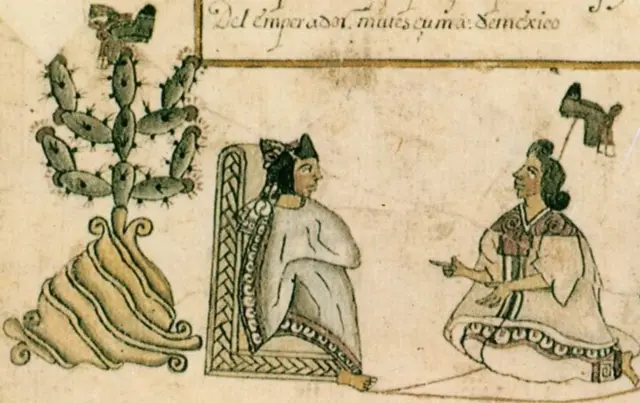 Del emperador, muteçuma. demexico